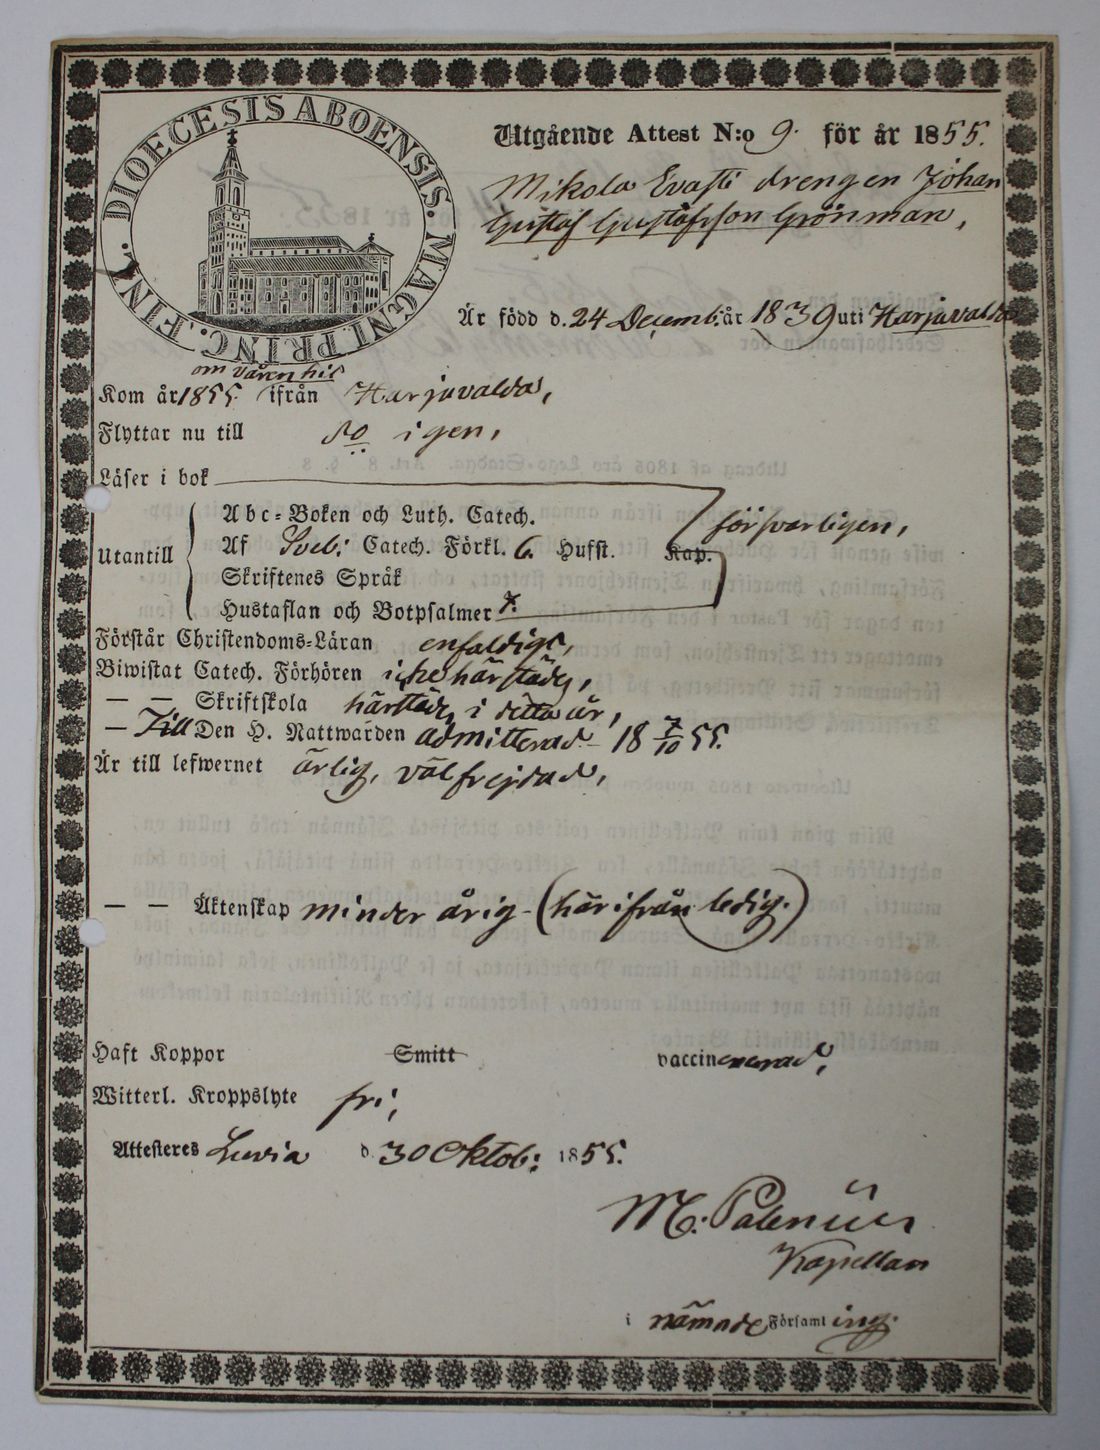 DIOECESIS ABOENSIS. MAGNI PRINC. FINL.
Utgående Attest N:o 9. för år 1855.
Mikola Evasti drengen Johan
Gustaf Gustafsson Grönman,
Är född d. 24 Decemb: år 1839 uti Harjavalda
om våren hit
Kom år 1855. ifrån Harjavalda,
Flyttar nu till do igen,
Läser i bok
Abc-Boken och Luth. Catech. försvarligen,
Utantill Af Sveb: Catech. Förkl. 6. Hufst. Kap.
Skriftenes Språk
Hustaflan och Botpsalmer
Förstår Christendoms-Läran enfaldigt,
Biwistat Catech. Förhören icke härstädes,
— — Skriftskola härstädes i detta år,
— Till Den H. Nattwarden admitterad 18 7/10 55.
Är till lefwernet ärlig, välfrejdad,
— — Äktenskap minderårig - (härifrån ledig.)
Haft Koppor Smitt vaccinerad,
Witterl. Kroppslyte fri,
Attesteres Luvia d 30 Oktob: 1855.
M: Palenius
Kapellan
i nämnde Församling.